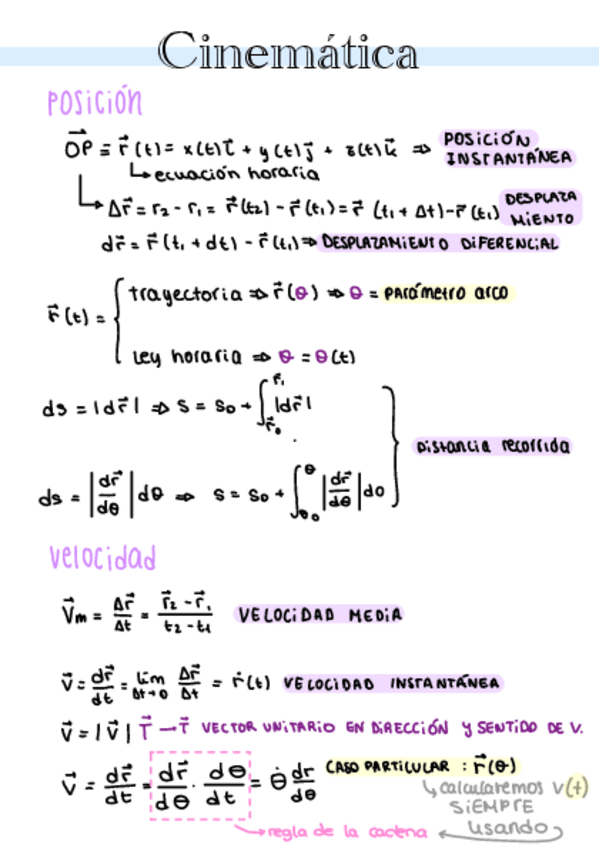 Cinemática
Posición
$\vec{OP} \equiv \vec{r}(t) = x(t)\vec{i} + y(t)\vec{j} + z(t)\vec{k} \Rightarrow$ POSICIÓN INSTANTÁNEA
↳ ecuación horaria
↳ $\Delta\vec{r} = r_2 - r_1 = \vec{r}(t_2) - \vec{r}(t_1) = \vec{r}(t_1 + \Delta t) - \vec{r}(t_1)$ DESPLAZAMIENTO
$d\vec{r} = \vec{r}(t_1 + dt) - \vec{r}(t_1) \Rightarrow$ DESPLAZAMIENTO DIFERENCIAL
$\vec{r}(t) =$ { trayectoria ⇒ $\vec{r}(\theta)$ ⇒ $\theta$ = PARÁMETRO ARCO
Ley horaria ⇒ $\theta = \theta(t)$
$ds = |d\vec{r}| \Rightarrow s = s_0 + \int_{\vec{r}_0}^{\vec{r}_1} |d\vec{r}|$
} Distancia recorrida
$ds = \left|\frac{d\vec{r}}{d\theta}\right| d\theta \Rightarrow s = s_0 + \int_{\theta_0}^{\theta} \left|\frac{d\vec{r}}{d\theta}\right| d\theta$
Velocidad
$\vec{v}_m = \frac{\Delta\vec{r}}{\Delta t} = \frac{\vec{r}_2 - \vec{r}_1}{t_2 - t_1}$ VELOCIDAD MEDIA
$\vec{v} = \frac{d\vec{r}}{dt} = \lim_{\Delta t \to 0} \frac{\Delta\vec{r}}{\Delta t} = \dot{r}(t)$ VELOCIDAD INSTANTÁNEA
$\vec{v} = |\vec{v}|\,\vec{T} \to \vec{T}$ VECTOR UNITARIO EN DIRECCIÓN Y SENTIDO DE V.
$\vec{v} = \frac{d\vec{r}}{dt} = \frac{d\vec{r}}{d\theta} \cdot \frac{d\theta}{dt} = \dot{\theta}\frac{dr}{d\theta}$ CASO PARTICULAR : $\vec{r}(\theta)$
↳ calcularemos v(t)
SIEMPRE
usando
→ regla de la cadena ←